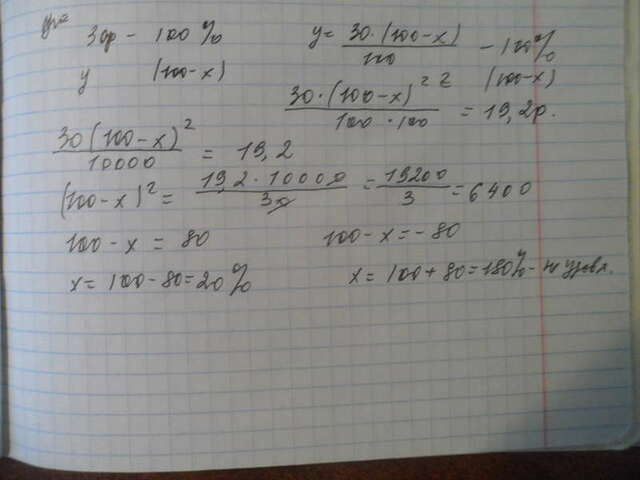 30р - 100%
y (100-x)
y = 30·(100-x)/100 - 100%
(100-x)
30·(100-x)²/100·100 = 19,2р.
30(100-x)²/10000 = 19,2
(100-x)² = 19,2·10000/30 = 19200/3 = 6400
100-x = 80
100-x = -80
x = 100-80 = 20%
x = 100+80 = 180% -